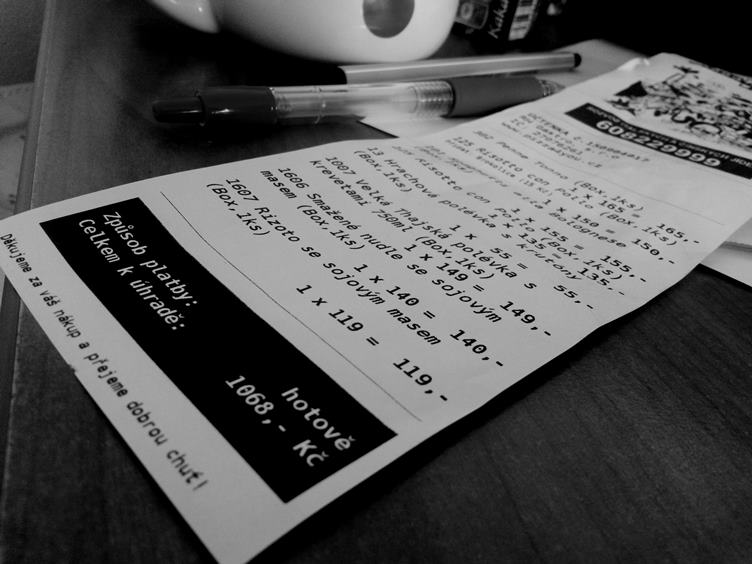 Kaka
602229999
ÚČTENKA
125 Risotto con
1 x 165 = 165,-
Penne Tonno (Box,1ks)
1 x 150 = 150,-
Bolognese
1 x 135 = 135,-
Risotto con (Box,1ks)
1 x 155 = 155,-
13 Hrachová polévka s
(Box,1ks)
1 x 55 = 55,-
1007 Velká Thajská polévka s
krevetami 750ml (Box,1ks)
1 x 149 = 149,-
1606 Smažené nudle se sojovým
masem (Box,1ks)
1 x 140 = 140,-
1607 Rizoto se sojovým masem
(Box,1ks)
1 x 119 = 119,-
Způsob platby: hotově
Celkem k úhradě: 1068,- Kč
Děkujeme za váš nákup a přejeme dobrou chuť!